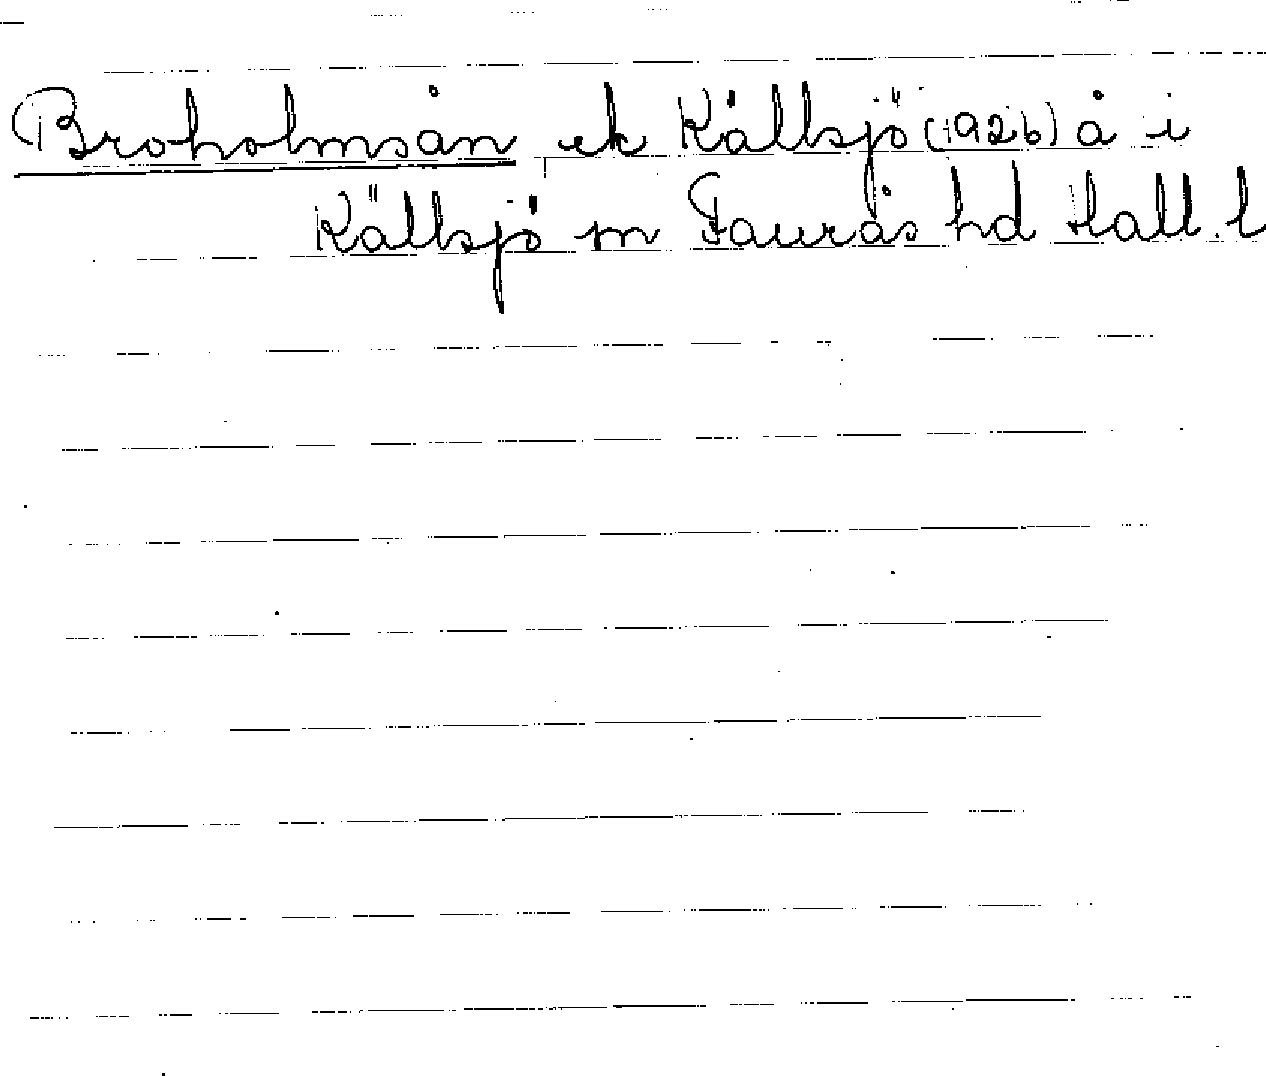 Broholmsån ek Källsjö (1926) å i
Källsjö sn Faurås hd Hall. l